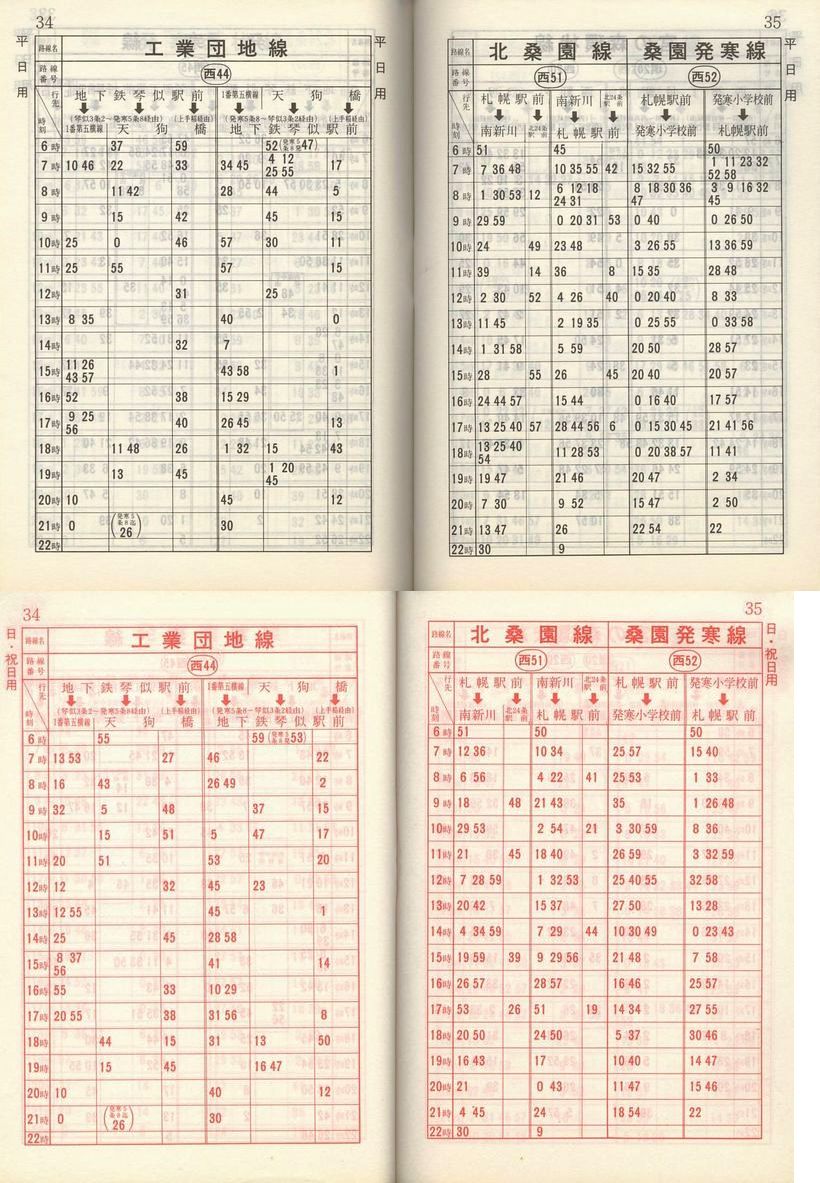 34
平日用
平日用
路線名 工業団地線
路線番号 西44
行先 地下鉄琴似駅前 1番第五横線 天狗橋
(琴似3条2〜発寒5条8経由) (上手稲経由) (発寒5条8〜琴似3条2経由) (上手稲経由)
時刻 1番第五横線 天狗橋 地下鉄琴似駅前
6時 37 59 52(発寒5条8発47)
7時 10 46 22 33 34 45 4 12 25 55 17
8時 11 42 28 44 5
9時 15 42 45 15
10時 25 0 46 57 30 11
11時 25 55 57 15
12時 31 25
13時 8 35 40 0
14時 32 7
15時 11 26 43 57 43 58 1
16時 52 38 15 29
17時 9 25 56 40 26 45 13
18時 11 48 26 1 32 15 43
19時 13 45 1 20 45
20時 10 45 12
21時 0 (発寒5条8迄26) 30
22時
35
平日用
路線名 北桑園線 桑園発寒線
路線番号 西51 西52
行先 札幌駅前 南新川 北24条駅前 札幌駅前 発寒小学校前
時刻 南新川 北24条駅前 札幌駅前 発寒小学校前 札幌駅前
6時 51 45 50
7時 7 36 48 10 35 55 42 15 32 55 1 11 23 32 52 58
8時 1 30 53 12 6 12 18 24 31 8 18 30 36 47 3 9 16 32 45
9時 29 59 0 20 31 53 0 40 0 26 50
10時 24 49 23 48 3 26 55 13 36 59
11時 39 14 36 8 15 35 28 48
12時 2 30 52 4 26 40 0 20 40 8 33
13時 11 45 2 19 35 0 25 55 0 33 58
14時 1 31 58 5 59 20 50 28 57
15時 28 55 26 45 20 40 20 57
16時 24 44 57 15 44 0 16 40 17 57
17時 13 25 40 57 28 44 56 6 0 15 30 45 21 41 56
18時 13 25 40 54 11 28 53 0 20 38 57 11 41
19時 19 47 21 46 20 47 2 34
20時 7 30 9 52 15 47 2 50
21時 13 47 26 22 54 22
22時 30 9
34
日・祝日用
路線名 工業団地線
路線番号 西44
行先 地下鉄琴似駅前 1番第五横線 天狗橋
(琴似3条2〜発寒5条8経由) (上手稲経由) (発寒5条8〜琴似3条2経由) (上手稲経由)
時刻 1番第五横線 天狗橋 地下鉄琴似駅前
6時 55 59(発寒5条8発53)
7時 13 53 27 46 22
8時 16 43 26 49 2
9時 32 5 48 37 15
10時 15 51 5 47 17
11時 20 51 53 20
12時 12 32 45 23
13時 12 55 45 1
14時 25 45 28 58
15時 8 37 56 41 14
16時 55 33 10 29
17時 20 55 38 31 56 8
18時 44 15 31 13 50
19時 15 45 16 47
20時 10 40 12
21時 0 (発寒5条8迄26) 30
22時
35
日・祝日用
路線名 北桑園線 桑園発寒線
路線番号 西51 西52
行先 札幌駅前 南新川 北24条駅前 札幌駅前 発寒小学校前
時刻 南新川 北24条駅前 札幌駅前 発寒小学校前 札幌駅前
6時 51 50 50
7時 12 36 10 34 25 57 15 40
8時 6 56 4 22 41 25 53 1 33
9時 18 48 21 43 35 1 26 48
10時 29 53 2 54 21 3 30 59 8 36
11時 21 45 18 40 26 59 3 32 59
12時 7 28 59 1 32 53 25 40 55 32 58
13時 20 42 15 37 27 50 13 28
14時 4 34 59 7 29 44 10 30 49 0 23 43
15時 19 59 39 9 29 56 21 48 7 58
16時 26 57 28 57 16 46 25 57
17時 53 26 51 19 14 34 27 55
18時 20 50 24 50 5 37 30 46
19時 16 43 17 10 40 14 47
20時 21 0 43 11 47 15 46
21時 4 45 24 18 54 22
22時 30 9